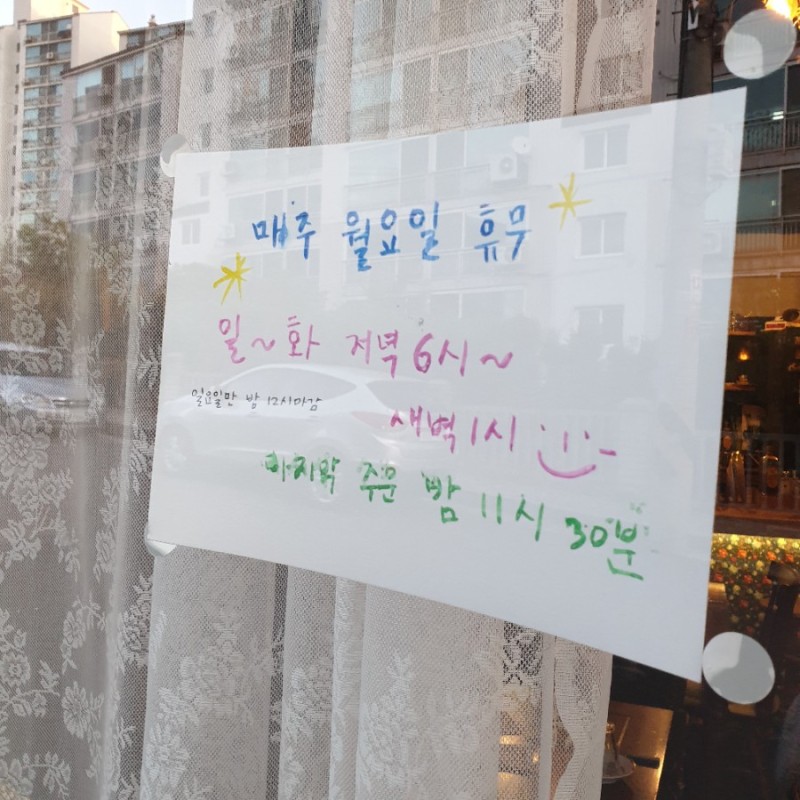 매주 월요일 휴무
일~화 저녁 6시~
일요일만 밤 12시마감
새벽 1시
마지막 주문 밤 11시 30분